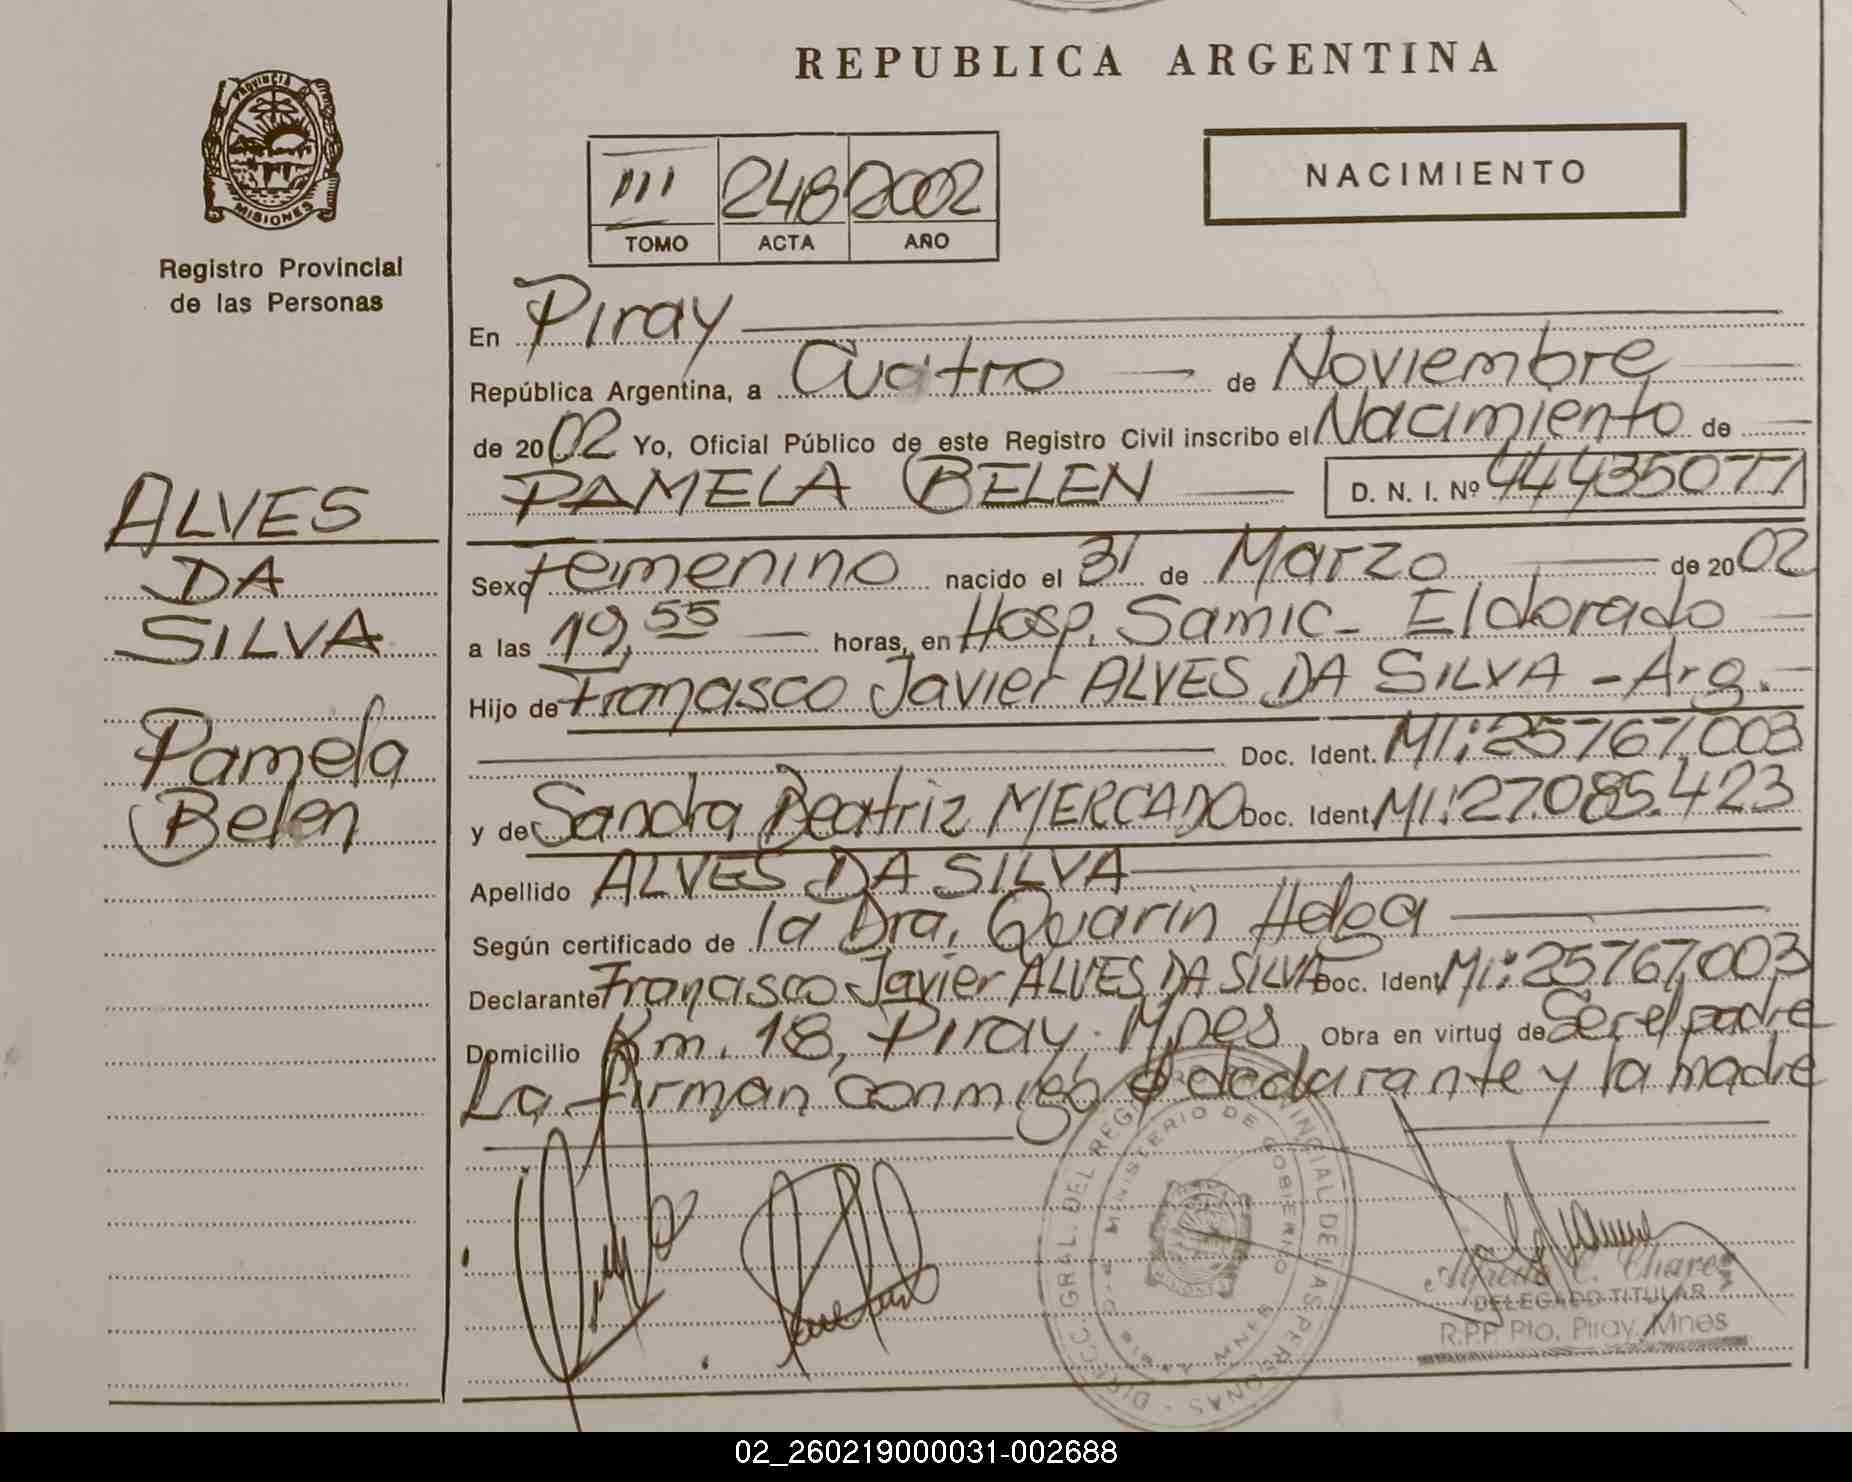 REPUBLICA ARGENTINA
PROVINCIA D
MISIONES
Registro Provincial
de las Personas
III 248 2002
TOMO ACTA AÑO
NACIMIENTO
ALVES
DA
SILVA
Pamela
Belen
En Piray
República Argentina, a Cuatro de Noviembre
de 2002 Yo, Oficial Público de este Registro Civil inscribo el Nacimiento de
PAMELA BELEN D. N. I. Nº 44435077
Sexo femenino nacido el 31 de Marzo de 2002
a las 19,55 horas, en Hosp. Samic - Eldorado
Hijo de Francisco Javier ALVES DA SILVA - Arg.
Doc. Ident. MI: 25767,003
y de Sandra Beatriz MERCADO Doc. Ident. MI: 27.085.423
Apellido ALVES DA SILVA
Según certificado de la Dra. Quarin Helga
Declarante Francisco Javier ALVES DA SILVA Doc. Ident MI: 25,767,003
Domicilio Km. 18, Piray. Mnes Obra en virtud de Ser el padre
La firman conmigo el declarante y la madre
DIRECC. GRAL. DEL REG. PROVINCIAL DE LAS PERSONAS
MINISTERIO DE GOBIERNO
C. Chavez
DELEGADO TITULAR
R.P.P. Pto. Piray, Mnes
02_260219000031-002688